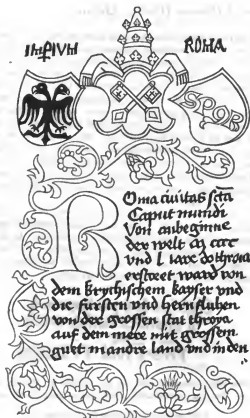 IMPIUM ROMA
SPQR
Roma ciuitas sctã
Caput mundi
Von anbeginne
der welt
vnd l iare do throia
erstreet ward von
dem krychischem kayser vnd
die fursten vnd hern fluhen
von der grossen stat throya
auf dem mere mit grossem
gutt in andre land vnd in den